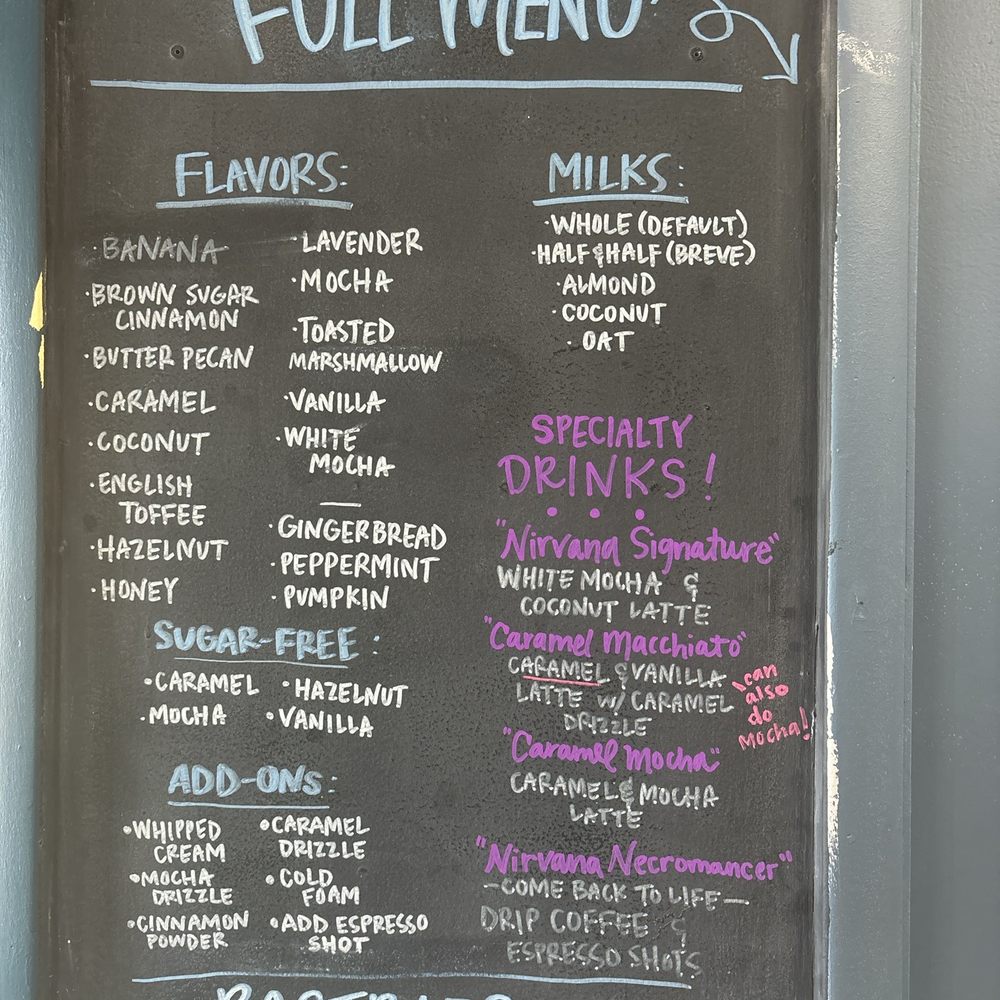 FULL MENU
FLAVORS:
·BANANA
·BROWN SUGAR
CINNAMON
·BUTTER PECAN
·CARAMEL
·COCONUT
·ENGLISH
TOFFEE
·HAZELNUT
·HONEY
·LAVENDER
·MOCHA
·TOASTED
MARSHMALLOW
·VANILLA
·WHITE
MOCHA
—
·GINGERBREAD
·PEPPERMINT
·PUMPKIN
SUGAR-FREE:
·CARAMEL
·MOCHA
·HAZELNUT
·VANILLA
ADD-ONS:
•WHIPPED
CREAM
•MOCHA
DRIZZLE
•CINNAMON
POWDER
•CARAMEL
DRIZZLE
•COLD
FOAM
•ADD ESPRESSO
SHOT
MILKS:
·WHOLE (DEFAULT)
·HALF & HALF (BREVE)
·ALMOND
·COCONUT
·OAT
SPECIALTY
DRINKS!
"Nirvana Signature"
WHITE MOCHA &
COCONUT LATTE
"Caramel Macchiato"
CARAMEL & VANILLA
LATTE w/ CARAMEL
DRIZZLE
can
also
do
Mocha!
"Caramel Mocha"
CARAMEL & MOCHA
LATTE
"Nirvana Necromancer"
—COME BACK TO LIFE—
DRIP COFFEE &
ESPRESSO SHOTS